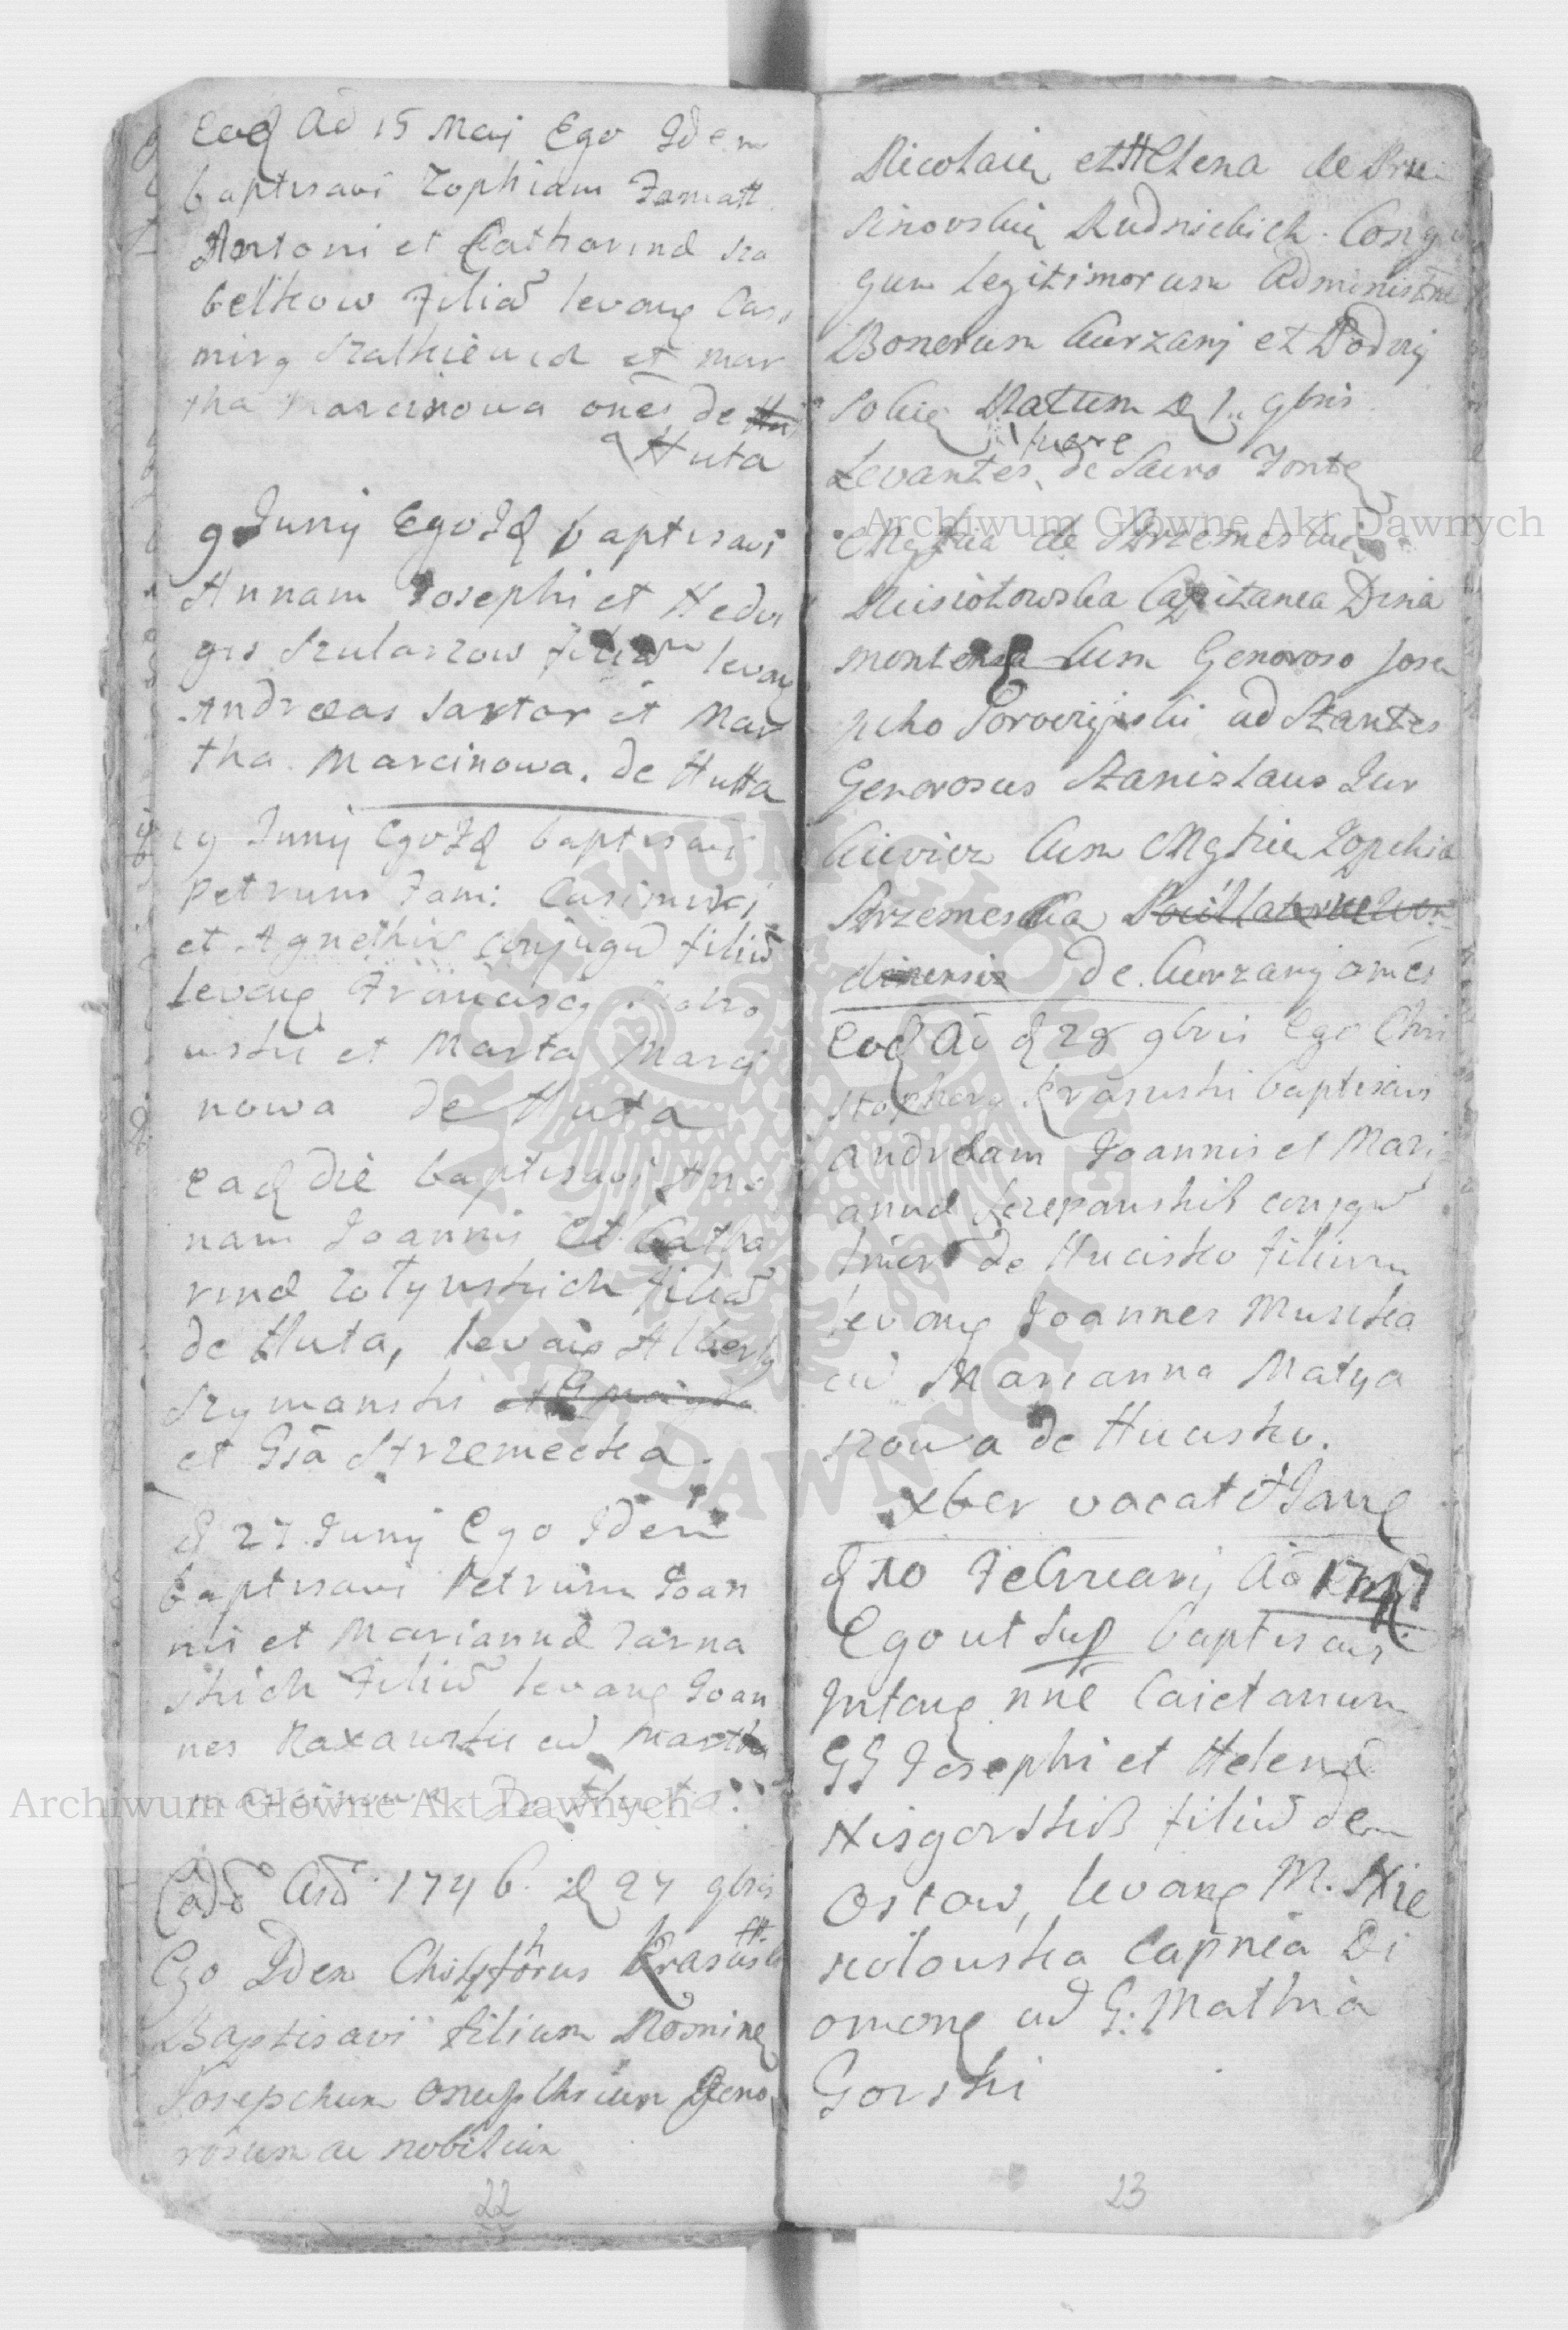 Eod Aō 15 Maij Ego Idem
baptisavi Zophiam Famatt
Antoni et Catharinæ Sza
belkow Filiã levang Casi
mirg Szalkiewicz et Mar
tha Marcinowa ones de
Huta
9 Junij Ego Id baptisavi
Annam Josephi et Hedvi
gis Szularzow filiam levang
Andreas Sartor et Mar
tha Marcinowa. de Hutta
19 Junij Ego Id baptisavi
Petrum Fam: Casimiri
et Agnethis conjugũ filiũ
levang Francisc
wski et Marta Marci
nowa de Huta
Ead die baptisavi An
nam Joannis et Catha
rinæ Zolynskich filiã
de Huta, levang Albert
Szymanski
et Gsa Strzemecka.
d 27 Junij Ego Idem
baptisavi Petrum Joan
nis et Mariannæ Tarna
skich Filiũ levang Joan
nes Raxawski cũ Martha
Marcinowa de Huta.
Eodẽ Año 1746. D 27 9bris
Ego Idem Christophorus Krasuski
Baptisavi filium Nomine
Josephum Onuphrium Geno
rosum ac nobilium
Nicolaie et Helena de Brze
zinovskie Rudnickich. Conju
gum Legitimorum Administrat
Bonorum Curzany et Podwy
sokie Natum D 1. 9bris
fuere
Levantes, de Sacro Fonte
Mgfica de Strzemeskie
Kisiolowska Capitanea Dzia
montens Cum Generoso Jose
pcho Porowijnski ad Stantes
Generosus Stanislaus Jur
kiewicz Cum Mgfica Zopchia
Strzemeska
de Curzany omes
Eod Aō d 28 9bris Ego Chri
stophorg Krasuski baptisavi
Andream Joannis et Mari
annæ Szczepanskich conjgũ
de Hucisko filium
levang Joannes Muszka
cũ Marianna Matya
szowa de Hucisko.
xber vacat et Jang
d 10 Februarij Aō 1747
Ego ut sup baptisavi
Intang nne Caietanum
GG Josephi et Helenæ
Nisgorskich filiũ de
Ostow, levang M. Kie
siolouska Capnea Di
omong cũ G. Mathia
Gorski
22
23
Archiwum Główne Akt Dawnych
Archiwum Główne Akt Dawnych
ARCHIWUM GŁÓWNE AKT DAWNYCH